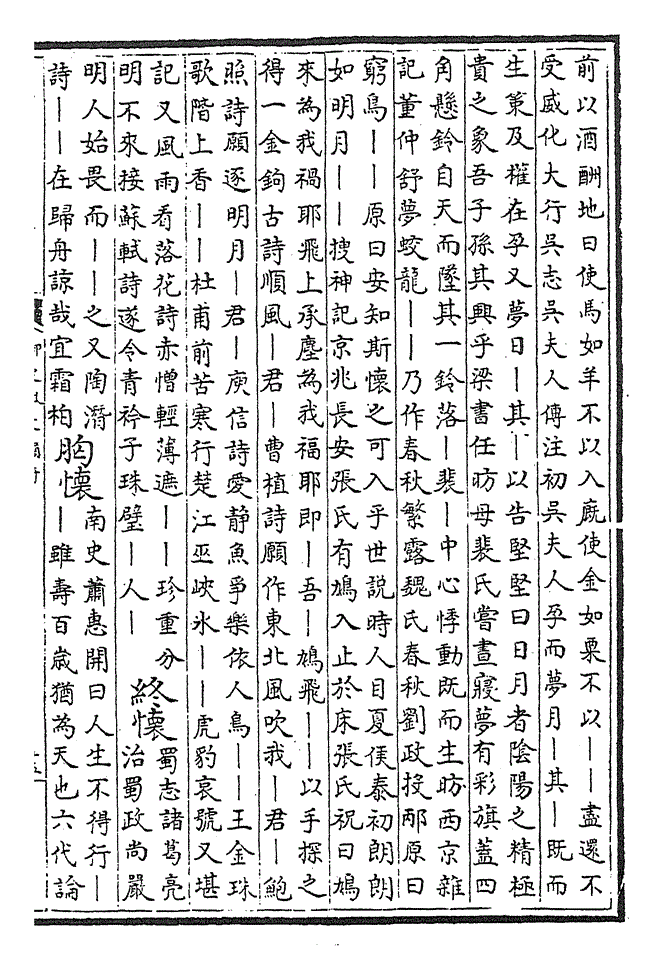 前以酒酬地曰使馬如羊不以入廐使金如粟不以丨丨盡還不
受威化大行吳志吳夫人傳注初吳夫人孕而夢月丨其丨既而
生策及權在孕又夢日丨其丨以告堅堅曰日月者陰陽之精極
貴之象吾子孫其興乎梁書任昉母裴氏嘗晝寢夢有彩旗蓋四
角懸鈴自天而墜其一鈴落丨裴丨中心悸動既而生昉西京雜
記董仲舒夢蛟龍丨丨乃作春秋繁露魏氏春秋劉政投邴原曰
窮鳥丨丨原曰安知斯懷之可入乎世說時人目夏侯泰初朗朗
如明月丨丨搜神記京兆長安張氏有鳩入止於床張氏祝曰鳩
來為我禍耶飛上承塵為我福耶即丨吾丨鳩飛丨丨以手探之
得一金鉤古詩順風丨君丨曹植詩願作東北風吹我丨君丨鮑
照詩願逐明月丨君丨庾信詩愛静魚爭樂依人鳥丨丨王金珠
歌階上香丨丨杜甫前苦寒行楚江巫峽氷丨丨虎豹哀號又堪
記又風雨看落花詩赤憎輕薄遮丨丨珍重分
明不來接蘇軾詩遂令青衿子珠璧丨人丨
終懷
蜀志諸葛亮
治蜀政尚嚴
明人始畏而丨丨之又陶潛
詩丨丨在歸舟諒哉宜霜柏
胸懷
南史蕭惠開曰人生不得行丨
丨雖壽百歲猶為天也六代論